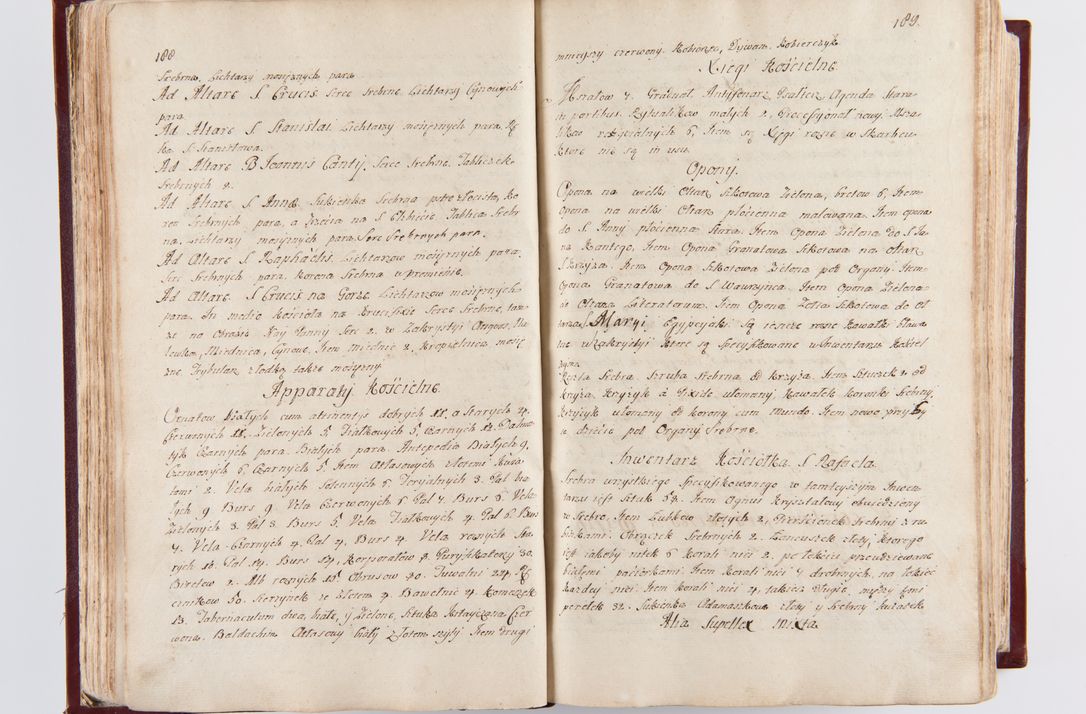 188
Srebrna. Lichtarzy mosięznych para.
Ad Altare S. Crucis Serce Srebrne Lichtarzy Cynowych
para
Ad Altare S. Stanislai Lichtarzy mosięznych para.
ka S. Stanisława.
Ad Altare B. Joannis Canty. Serce Srebrne. Tabliczek
Srebrnych 2.
Ad Altare S. Annæ Sukienka Srebrna pstro złocista, Ko
ron Srebrnych para, a trzecia na S. Elzbiecie. Tablica Srebr
na. Lichtarzy mosięznych para. Serc Srebrnych para.
Ad Altare S. Raphaelis Lichtarzow mosięznych para
Serc Srebrnych para. Korona Srebrna w premienie.
Ad Altare S. Crucis na Gorze Lichtarzow mosięznych
para. In medio Kościoła na Krucifixie Serce Srebrne, tam
ze na Obrazie Nay Panny Serc 2. w Zakrystyi
lewka, Miednica, Cynowe, Item Miednic 2. Kropielnica mosię
zna Trybularz z łodką także mosięzny.
Apparaty Kościelne
Ornatow białych cum attinentijs dobrych 11. a Starych 4.
Czerwonych 11. Zielonych 5. Fiałkowych 5. Czarnych 12. Dalma
tyk Czarnych para. Białych para. Antepedia Białych 9.
Czerwonych 6. Czarnych 5. Item Atłasowych złotemi Kwia
tami 2. Vela białych Sukunnych 6. Feryalnych 3. Pal bia
łych 9. Burs 9. Vela Czerwonych 6. Pal 7. Burs 8. Vela
Zielonych 3. Pal 3. Burs 5. Vela Fiałkowych 4. Pal 6. Burs
7. Vela Czarnych 4. Pal 4. Burs 4. Vela roznych Sta
rych 12. Pal 14. Burs 14. Korporałow 8. Puryfikaterzy 30.
Biretow 2. Alb roznych 15. Obrusow 40. Tuwalni 24.
cznikow 50. Sterzynek ze złotem 4. Bawełnic 4. Komeszek
13. Tabernaculum dwa, białe, y Zielone, Sztuka Kitayczana Czer
wona. Baldachim Atłasowy biały złotem szyty. Item drugi
189.
mnieyszy czerwony. Kobierce, Dywan. Kobierczyk
Xięgi Kościelne
Mszałow 7. Graduał. Antyfonarz. Psałterz. Agenda Stara
in partibus. Rytualikow małych 2. Processyonał nowy. Msza
łkow requialnych 6. Item są Xięgi rozne w Skarbcu
ktore nie są in usu.
Opony.
Opona na wielki Ołtarz Szkotowa Zielona, bretow 6, Item
opona na wielki Ołtarz płocienna malowana. Item opona
do S. Anny płocienna Stara. Item Opona Zielona do S. Ja
na Kantego, Item Opona Granatowa Szkotowa na ołtarz
S. Krzyża. Item Opona Szkotowa Zielona pod Organy. Item
Opona Granatowa do S. Wawrzyńca. Item Opona Zielona
do Ołtarza Literatorum. Item Opona Zołta Szkotowa do Oł
tarza S. Maryi Egypcyaki. Są ieszcze rozne Kawałki bława
tne w Zakrystyi ktore są Specyfikowane w Inwentarzu Kościel
nym.
Reszta Srebra. Szruba Srebrna od Krzyża. Item Sztuczek 2. od
Krzyża. Krzyżyk a Pixide ułomany. Kawałek Koronki Srebrny,
Krzyżyk ułomany od korony cum Mundo. Item nowo przyby
ło Serce pod Organy Srebrne.
Inwentarz Kościołka S. Rafaela
Srebra wszystkiego Specyfikowanego w tamtyszym Inwen
tarzu iest Sztuk 54. Item Agnus Kryształowy obwiedziony
w Srebro. Item Zubkow złotych 2. Pierścionek Srebrny z ru
binkami. Obrączek Srebrnych 2. Łancuszek złoty, ktorego
iest iakoby nitek 6. Korali nici 2. po łokciu przewdziewane
białymi paciorkami. Item Korali nici 7. drobnych, na łokieć
kazdey nici. Item korali nici 4. łokieć długie, między temi
perełek 32. Sukienka Adamaszkowa złoty y Srebrny kwiatek
Alia Supellex Mixta